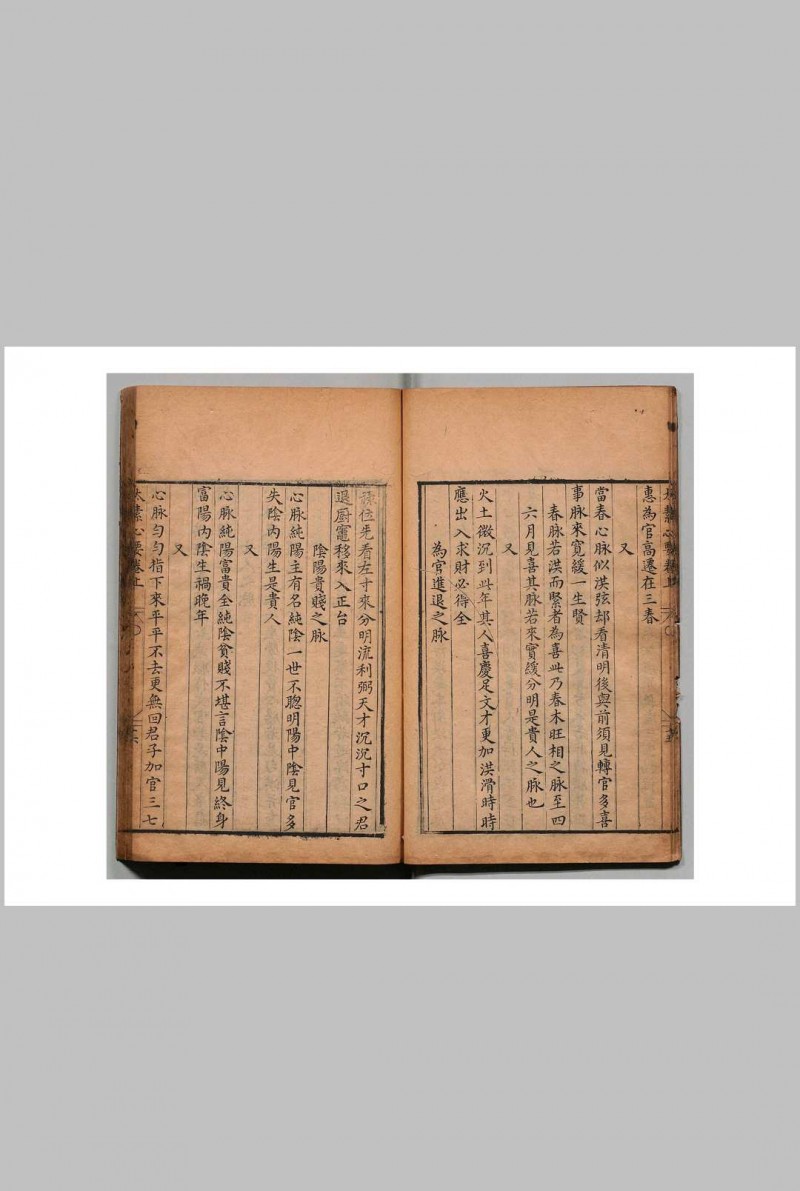 惠為官高遷在三春
又
當春心脉似洪弦却看清明後與前須見轉官多喜
事脉來寛緩一生賢
春脉若洪而緊者為喜此乃春木旺相之脉至四
六月見喜其脉若來實緩分明是貴人之脉也
又
火土微沉到此年其人喜慶足文才更加洪滑時時
應出入求財必得全
為官進退之脉
位先看左寸來分明流利弼天才沉沉寸口之君
退厨竈移來入正台
陰陽貴賤之脉
心脉純陽主有名純陰一世不聰明陽中陰見官多
失陰內陽生是貴人
又
心脉純陽富貴全純陰貧賤不堪言陰中陽見終身
富陽內陰生禍晚年
又
心脉勻勻指下來平平不去更無回君子加官三七
太素心要卷上